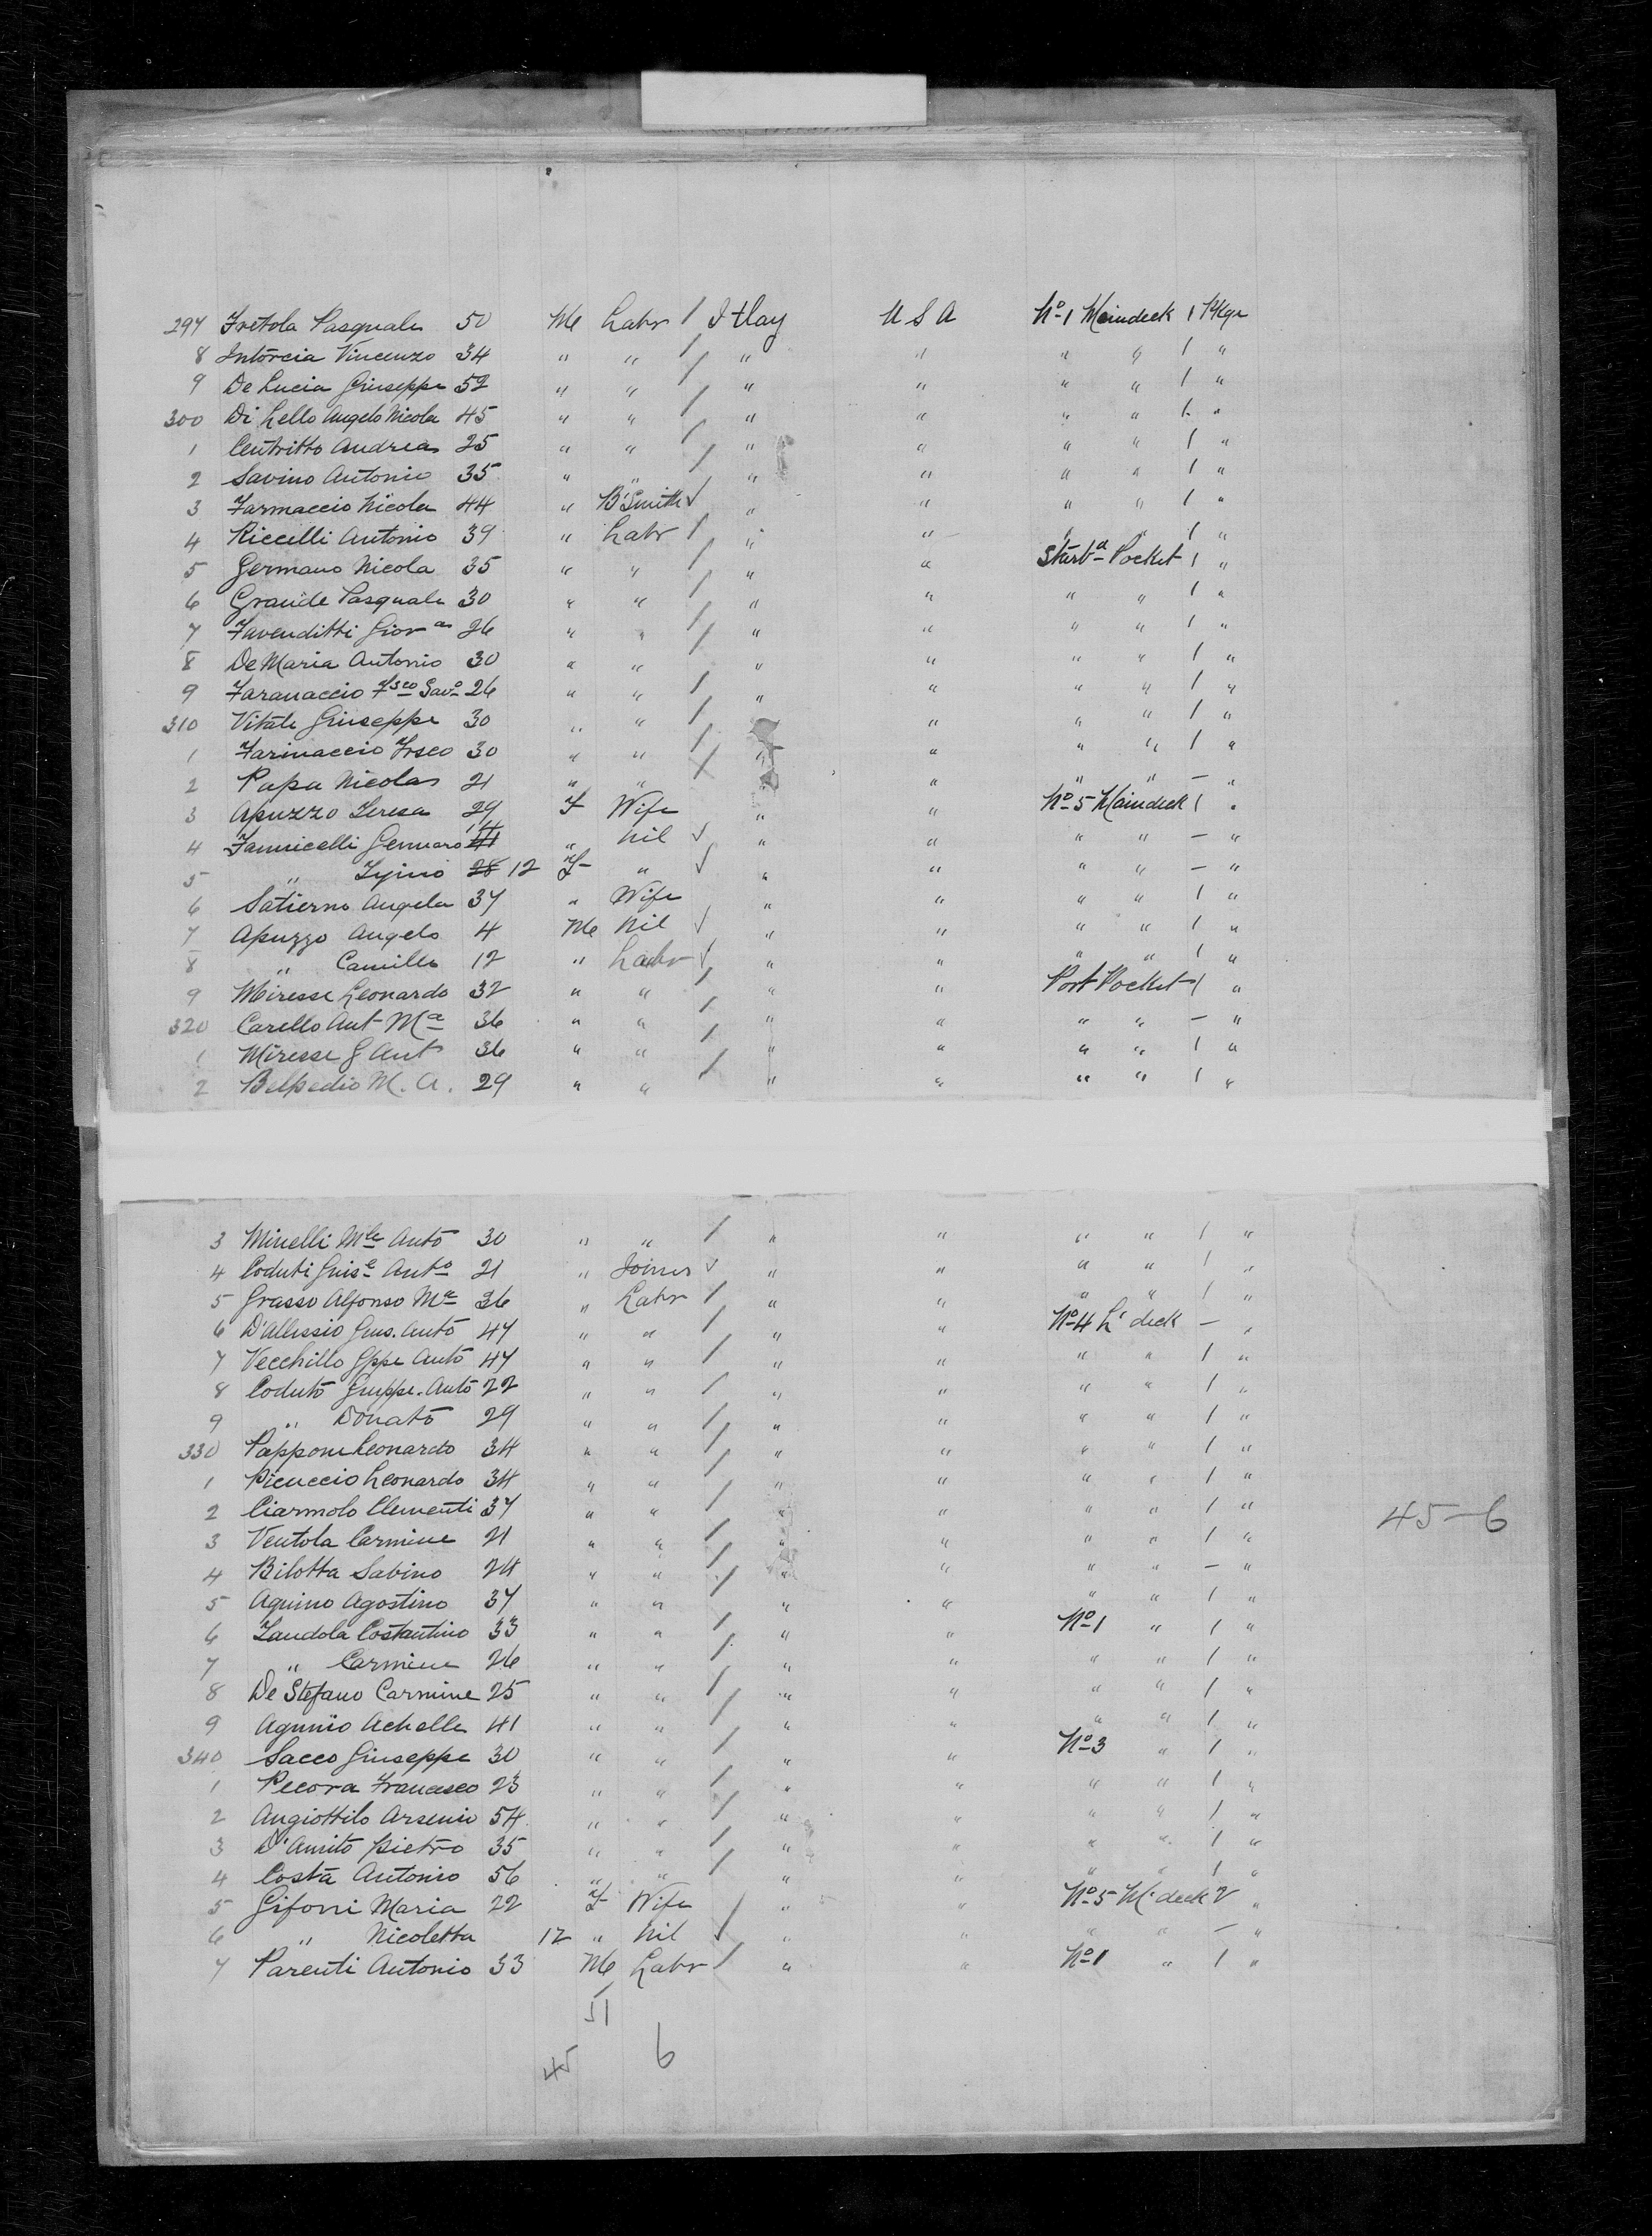 297 Fretola Pasquale 50 Me Labr / Itlay U S A No 1 Maindeck 1 Pkge
8 Intorcia Vincenzo 34 " " / " " " " 1 "
9 De Lucia Giuseppe 52 " " / " " " " 1 "
300 Di Lello Angelo Nicola 45 " " / " " " " 1 "
1 Centritto Andrea 25 " " / " " " " 1 "
2 Savino Antonio 35 " " / " " " " 1 "
3 Farmaccio Nicola 44 " B'Smith √ " " " " 1 "
4 Riccelli Antonio 39 " Labr / " " " " 1 "
5 Germano Nicola 35 " " / " " Starbd Pocket 1 "
6 Grande Pasquale 30 " " / " " " " 1 "
7 Favenditti Giov 26 " " / " " " " 1 "
8 De Maria Antonio 30 " " / " " " " 1 "
9 Faranaccio Fsco Savo 26 " " / " " " " 1 "
310 Vitale Giuseppe 30 " " / " " " " 1 "
1 Farinaccio Frsco 30 " " / " " " " 1 "
2 Papa Nicola 21 " " / " " " " — "
3 Apuzzo Teresa 29 F Wife " " No 5 Maindeck 1 "
4 Fannicelli Gennaro 14 " Nil √ " " " " — "
5 " 28 12 F " √ " " " " — "
6 Satierno Angela 37 " Wife " " " " 1 "
7 Apuzzo Angelo 4 Me Nil √ " " " " 1 "
8 " Camillo 12 " Labr √ " " " " 1 "
9 Miresse Leonardo 32 " " / " " Port Pocket 1 "
320 Carello Ant Ma 36 " " / " " " " — "
1 Miresse G Ant 36 " " / " " " " 1 "
2 Belpedio M. A. 29 " " / " " " " 1 "
3 Minelli Mle Anto 30 " " / " " " " 1 "
4 Coduti Guise Anto 21 " Joiner √ " " " " 1 "
5 Grasso Alfonso Ma 36 " Labr / " " " " 1 "
6 D'Allessio Gius. Anto 47 " " / " " No 4 L' deck — "
7 Vecchillo Gppe Anto 47 " " / " " " " 1 "
8 Coduto Giuppe. Anto 22 " " / " " " " 1 "
9 " Donato 29 " " / " " " " 1 "
330 Pappone Leonardo 34 " " / " " " " 1 "
1 Picuccio Leonardo 34 " " / " " " " 1 "
2 Ciarmolo Clementi 37 " " / " " " " 1 " 45-6
3 Ventola Carmine 21 " " / " " " " 1 "
4 Bilotta Sabino 24 " " / " " " " — "
5 Aquino Agostino 37 " " / " " " " 1 "
6 Landola Costantino 33 " " / " " No 1 " 1 "
7 " Carmine 26 " " / " " " " 1 "
8 De Stefano Carmine 25 " " / " " " " 1 "
9 Achelle 41 " " / " " " " 1 "
340 Sacco Giuseppe 30 " " / " " No 3 " 1 "
1 Pecora Francesco 23 " " / " " " " 1 "
2 Angiottilo Arsenio 54 " " / " " " " 1 "
3 D'Amito Pietro 35 " " / " " " " 1 "
4 Costa Antonio 56 " " / " " " " 1 "
5 Gifoni Maria 22 F Wife / " " No 5 M' deck 2 "
6 " Nicoletta 12 " Nil √ " " " " — "
7 Parenti Antonio 33 Me Labr / " " No 1 " 1 "
51
45 6